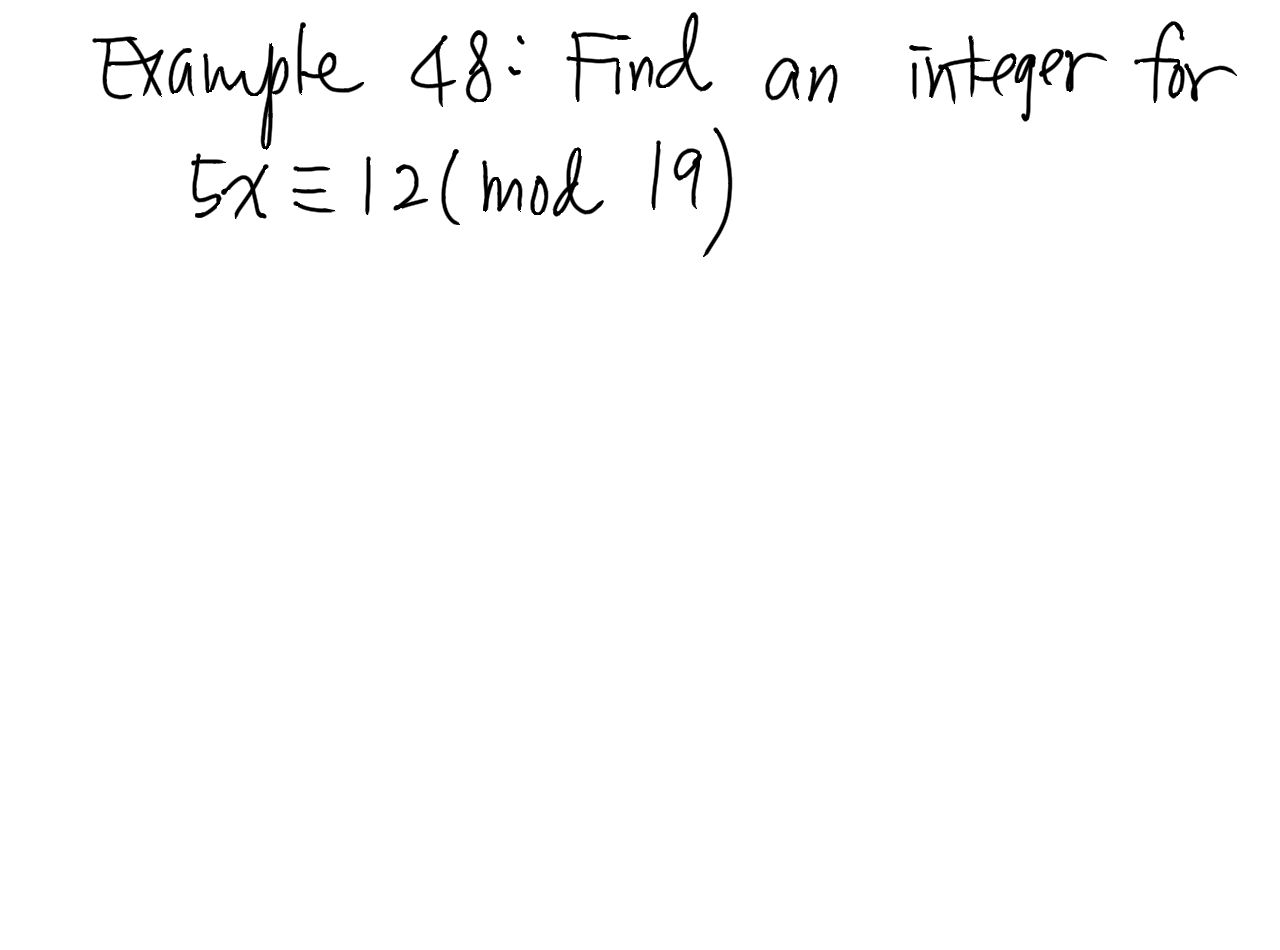 Example 48: Find an integer for
5x ≡ 12 (mod 19)